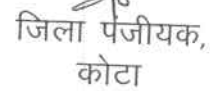 जिला पंजीयक,
कोटा